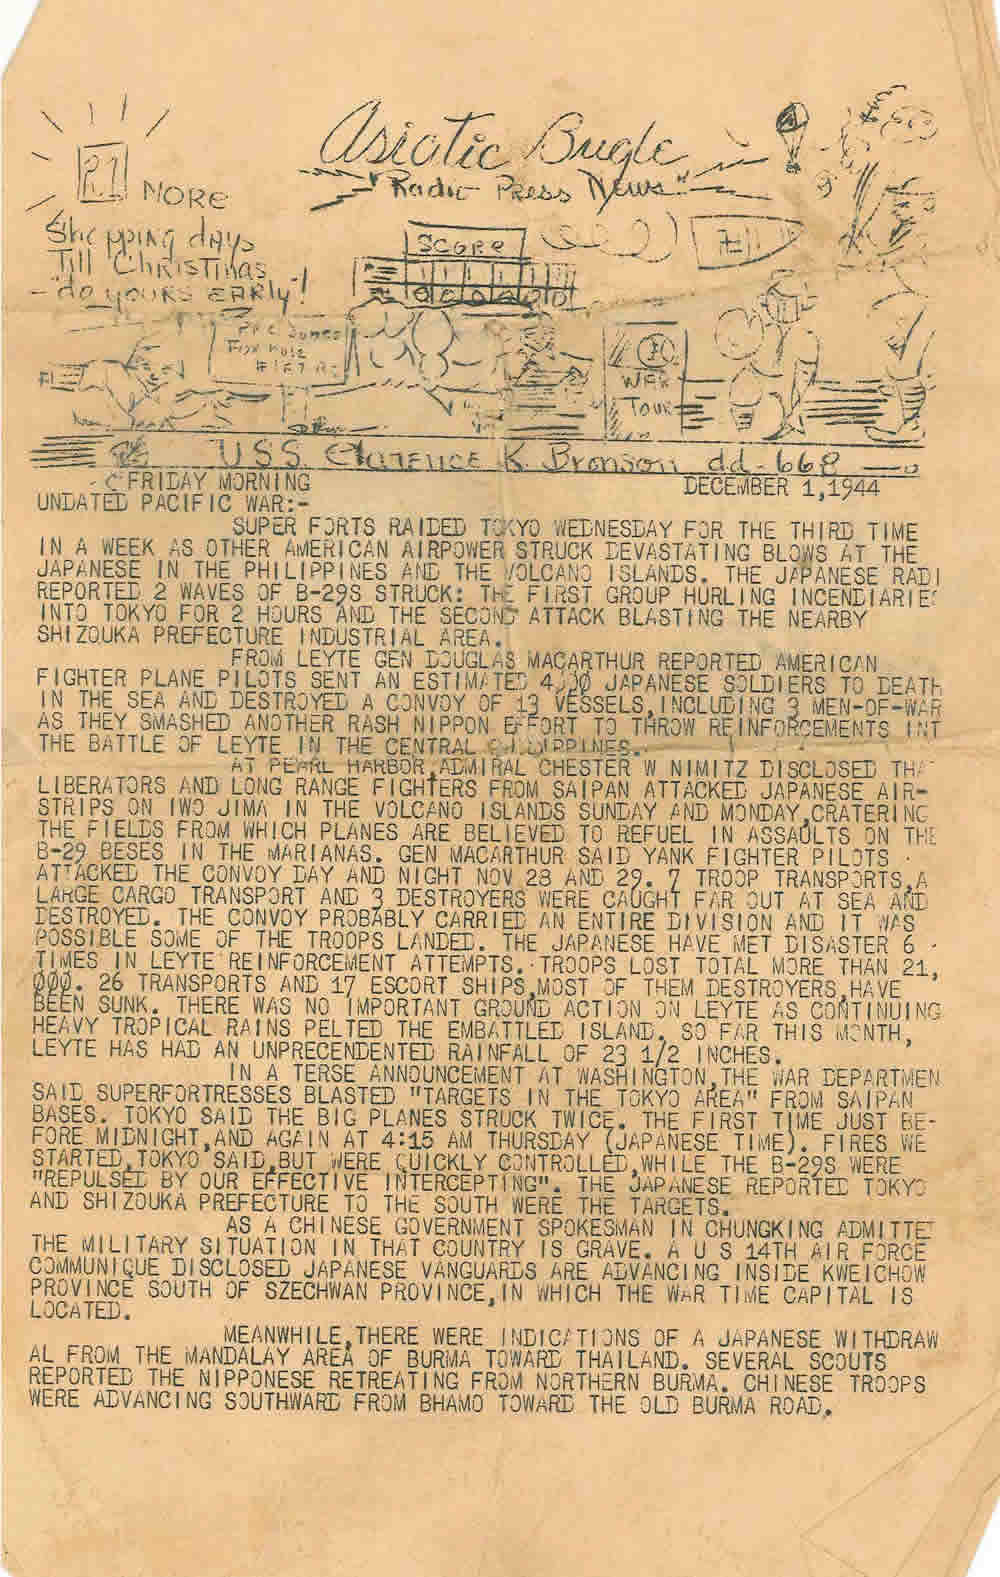 Asiatic Bugle
"Radio Press News"
21 MORE
Shopping days
Till Christmas
- "do yours EARLY"!
SCORE
Pfc Jones
Fox Hole
WAR
Tour
USS. Clarence K. Bronson dd-668
FRIDAY MORNING DECEMBER 1,1944
UNDATED PACIFIC WAR:-
SUPER FORTS RAIDED TOKYO WEDNESDAY FOR THE THIRD TIME
IN A WEEK AS OTHER AMERICAN AIRPOWER STRUCK DEVASTATING BLOWS AT THE
JAPANESE IN THE PHILIPPINES AND THE VOLCANO ISLANDS. THE JAPANESE RADI
REPORTED 2 WAVES OF B-29S STRUCK: THE FIRST GROUP HURLING INCENDIARIES
INTO TOKYO FOR 2 HOURS AND THE SECOND ATTACK BLASTING THE NEARBY
SHIZOUKA PREFECTURE INDUSTRIAL AREA.
FROM LEYTE GEN DOUGLAS MACARTHUR REPORTED AMERICAN
FIGHTER PLANE PILOTS SENT AN ESTIMATED 4,000 JAPANESE SOLDIERS TO DEATH
IN THE SEA AND DESTROYED A CONVOY OF 13 VESSELS,INCLUDING 3 MEN-OF-WAR
AS THEY SMASHED ANOTHER RASH NIPPON EFFORT TO THROW REINFORCEMENTS INT
THE BATTLE OF LEYTE IN THE CENTRAL PHILIPPINES.
AT PEARL HARBOR,ADMIRAL CHESTER W NIMITZ DISCLOSED THAT
LIBERATORS AND LONG RANGE FIGHTERS FROM SAIPAN ATTACKED JAPANESE AIR-
STRIPS ON IWO JIMA IN THE VOLCANO ISLANDS SUNDAY AND MONDAY,CRATERING
THE FIELDS FROM WHICH PLANES ARE BELIEVED TO REFUEL IN ASSAULTS ON THE
B-29 BESES IN THE MARIANAS. GEN MACARTHUR SAID YANK FIGHTER PILOTS
ATTACKED THE CONVOY DAY AND NIGHT NOV 28 AND 29. 7 TROOP TRANSPORTS,A
LARGE CARGO TRANSPORT AND 3 DESTROYERS WERE CAUGHT FAR OUT AT SEA AND
DESTROYED. THE CONVOY PROBABLY CARRIED AN ENTIRE DIVISION AND IT WAS
POSSIBLE SOME OF THE TROOPS LANDED. THE JAPANESE HAVE MET DISASTER 6
TIMES IN LEYTE REINFORCEMENT ATTEMPTS. TROOPS LOST TOTAL MORE THAN 21,
000. 26 TRANSPORTS AND 17 ESCORT SHIPS,MOST OF THEM DESTROYERS,HAVE
BEEN SUNK. THERE WAS NO IMPORTANT GROUND ACTION ON LEYTE AS CONTINUING
HEAVY TROPICAL RAINS PELTED THE EMBATTLED ISLAND. SO FAR THIS MONTH,
LEYTE HAS HAD AN UNPRECENDENTED RAINFALL OF 23 1/2 INCHES.
IN A TERSE ANNOUNCEMENT AT WASHINGTON,THE WAR DEPARTMEN
SAID SUPERFORTRESSES BLASTED "TARGETS IN THE TOKYO AREA" FROM SAIPAN
BASES. TOKYO SAID THE BIG PLANES STRUCK TWICE. THE FIRST TIME JUST BE-
FORE MIDNIGHT,AND AGAIN AT 4:15 AM THURSDAY (JAPANESE TIME). FIRES WE
STARTED,TOKYO SAID,BUT WERE QUICKLY CONTROLLED,WHILE THE B-29S WERE
"REPULSED BY OUR EFFECTIVE INTERCEPTING". THE JAPANESE REPORTED TOKYO
AND SHIZOUKA PREFECTURE TO THE SOUTH WERE THE TARGETS.
AS A CHINESE GOVERNMENT SPOKESMAN IN CHUNGKING ADMITTED
THE MILITARY SITUATION IN THAT COUNTRY IS GRAVE. A U S 14TH AIR FORCE
COMMUNIQUE DISCLOSED JAPANESE VANGUARDS ARE ADVANCING INSIDE KWEICHOW
PROVINCE SOUTH OF SZECHWAN PROVINCE,IN WHICH THE WAR TIME CAPITAL IS
LOCATED.
MEANWHILE,THERE WERE INDICATIONS OF A JAPANESE WITHDRAW
AL FROM THE MANDALAY AREA OF BURMA TOWARD THAILAND. SEVERAL SCOUTS
REPORTED THE NIPPONESE RETREATING FROM NORTHERN BURMA. CHINESE TROOPS
WERE ADVANCING SOUTHWARD FROM BHAMO TOWARD THE OLD BURMA ROAD.